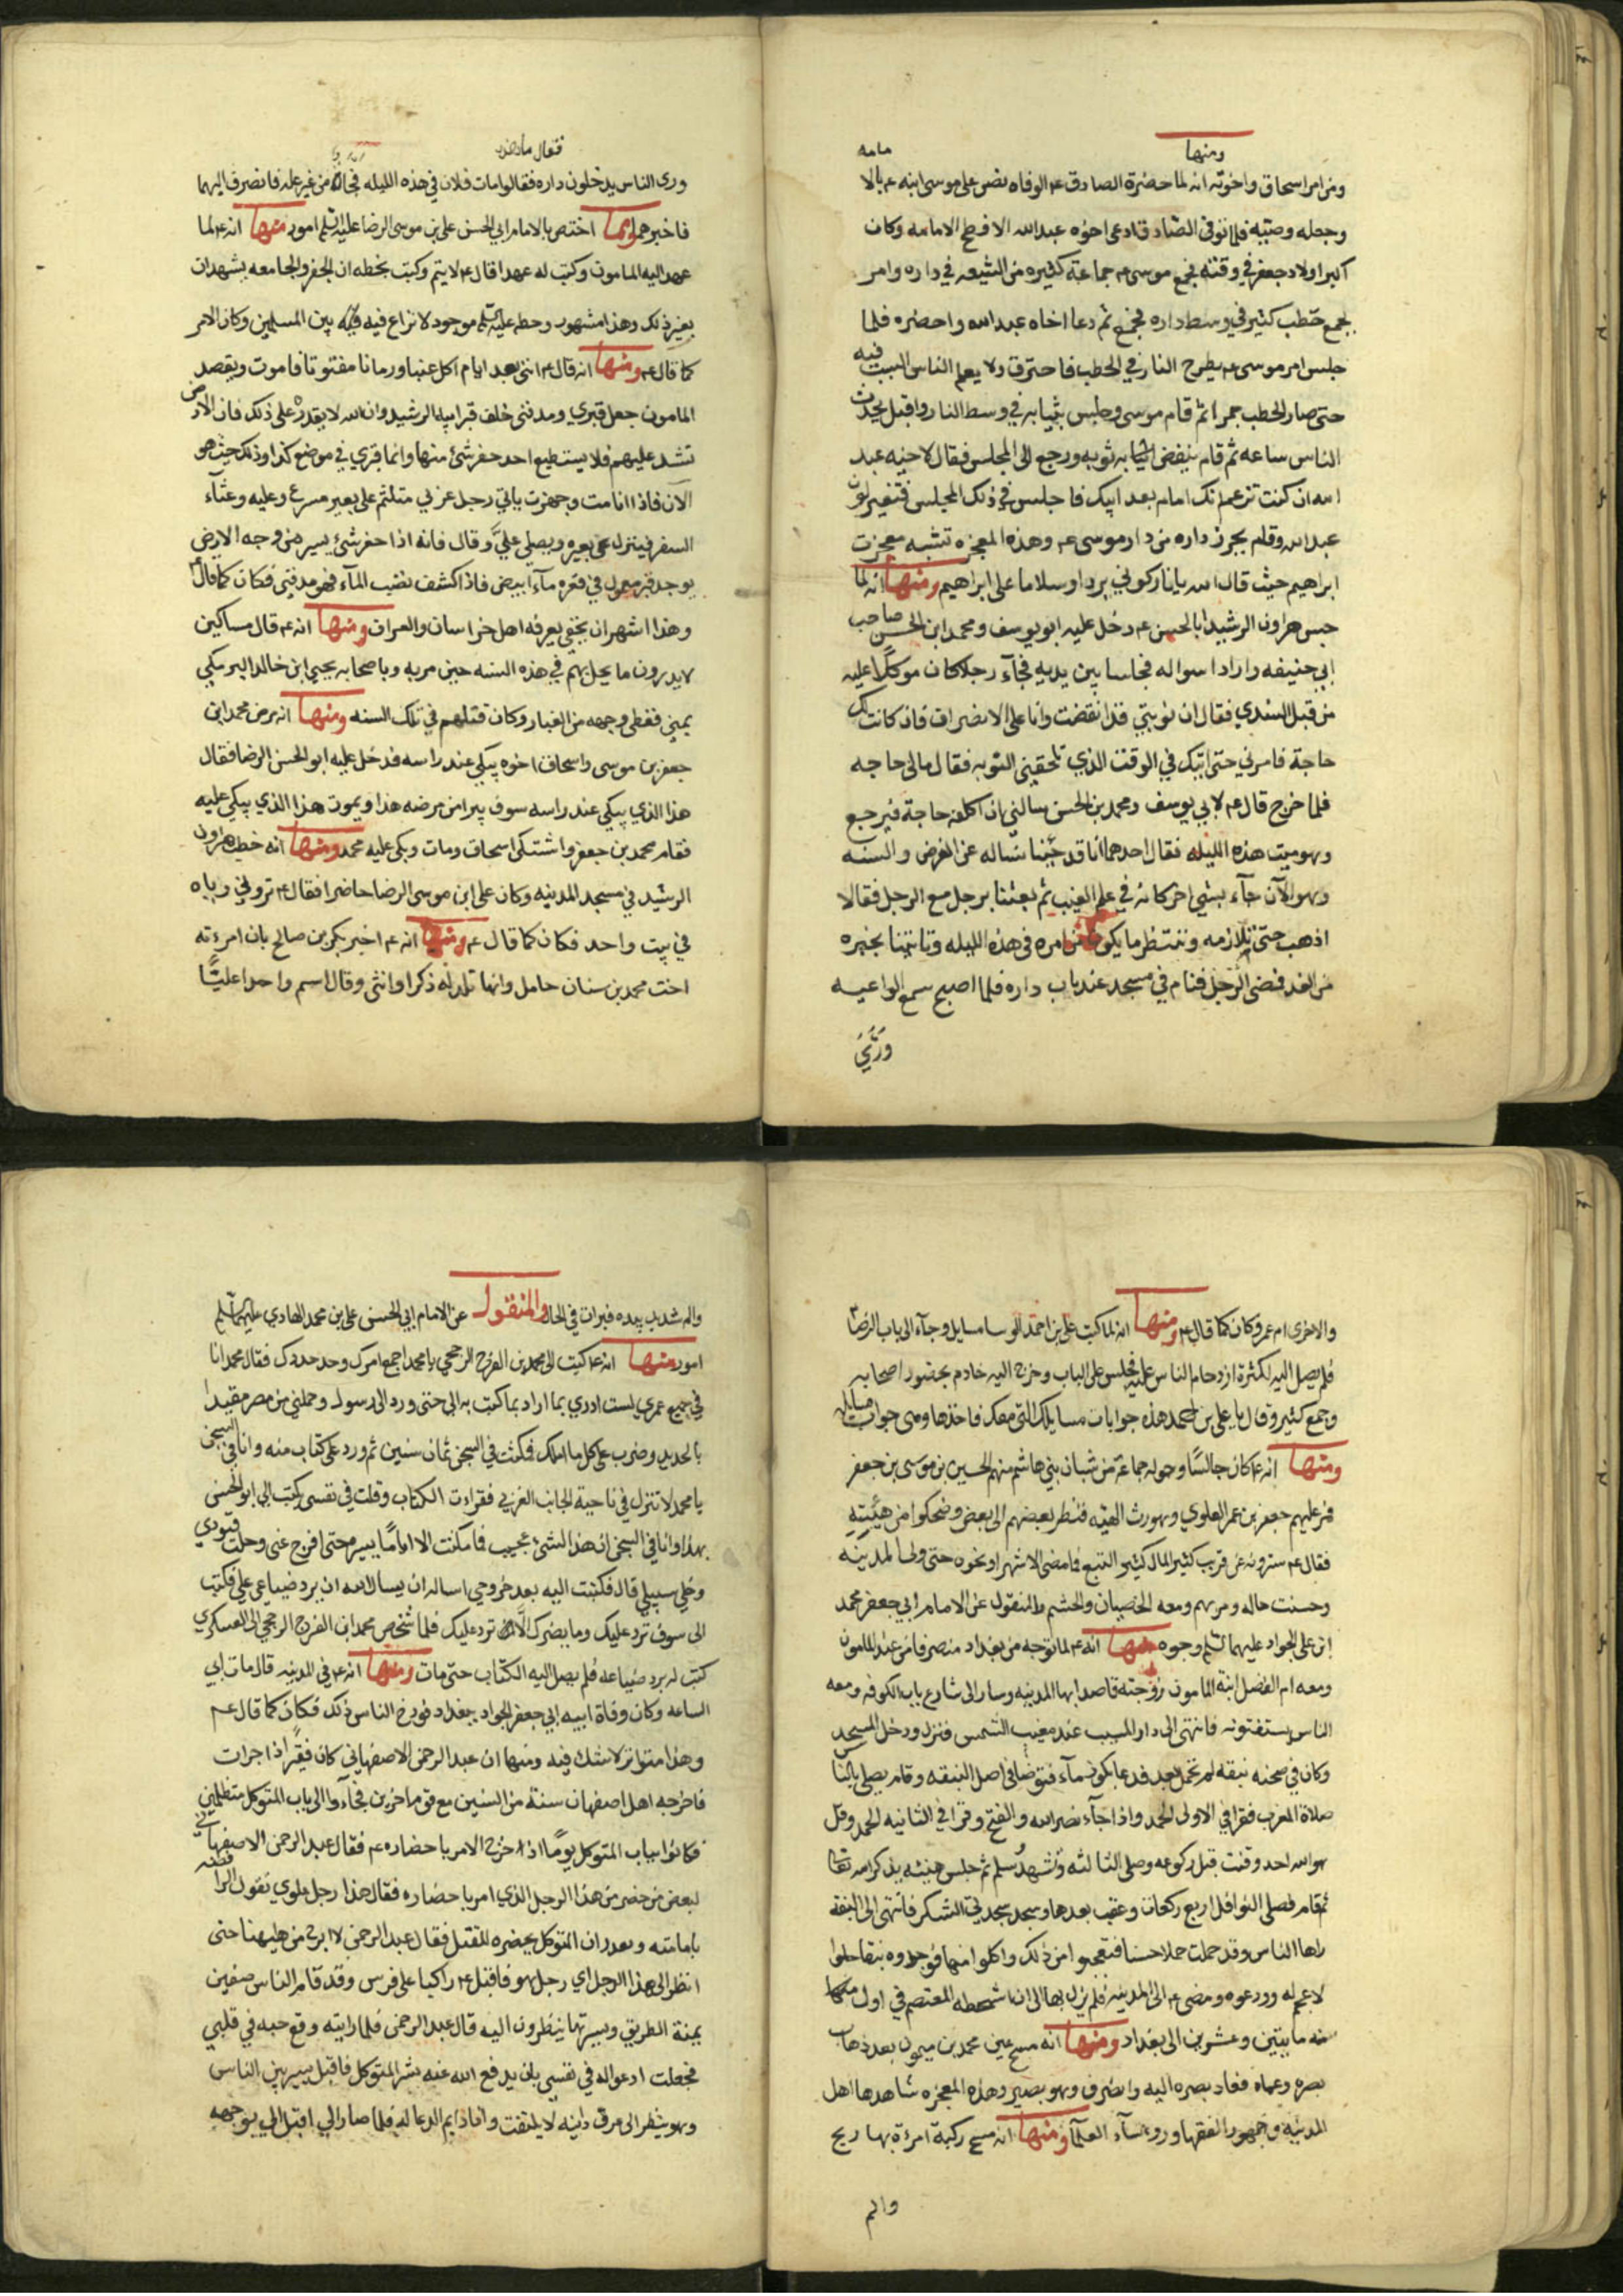 ومنها
مامه
ومن امر اسحاق واخوته انه لما حضرة الصادق ع الوفاه نص على موسى ابنه ع بالا
وجعله وصيه فلما توفى الصادق ادعى اخوه عبد الله الافطح الامامه وكان
اكبر اولاد جعفر في وقته فجمع موسى ع جماعة كثيره من الشيعه في داره وامر
بجمع حطب كثير في وسط داره فجمع ثم دعا اخاه عبد الله واحضره فلما
جلس امر موسى ع بطرح النار في الحطب فاحترق ولا يعلم الناس السبب فيه
حتى صار الحطب جمرا ثم قام موسى وجلس بثيابه في وسط النار واقبل يحدث
الناس ساعه ثم قام ينفض ثوبه ورجع الى المجلس فقال لاخيه عبد
الله ان كنت تزعم انك امام بعد ابيك فاجلس في ذلك المجلس فتغير لون
عبد الله وقام يجر داره من دار موسى ع وهذه المعجزه تشبه معجزت
ابراهيم حيث قال الله يا نار كوني بردا وسلاما على ابراهيم ومنها انه لما
حبس هرون الرشيد ابا الحسن ع دخل عليه ابو يوسف ومحمد ابن الحسن صاحب
ابي حنيفه وارادا سواله فجلسا بين يديه فجآء رجل كان موكلا عليه
من قبل السندي فقال ان نوبتي قد انقضت وانا على الانصراف فان كانت لك
حاجة فامرني حتى اتيك في الوقت الذي تلحقني النوبه فقال مالى حاجه
فلما خرج قال ع لابي يوسف ومحمد بن الحسن سالني ان اكلفه حاجة فيرجع
وهو ميت هذه الليله فقال احدهما انا قد جئنا نساله عن الفرض والسنه
وهو الآن جآء بشي اخر كانه في علم الغيب ثم بعثنا برجل مع الرجل فقالا
اذهب حتى تلازمه وتنتظر ما يكون من امره في هذه الليله وتاتينا بخبره
من الغد فمضى الرجل فنام في مسجد عند باب داره فلما اصبح سمع الواعيه
ورئي
فقال ما هذه
ورى الناس يدخلون داره فقالوا مات فلان في هذه الليله فجاه من غير عله فانصرف اليهما
فاخبرهما واما اختص بالامام ابي الحسن على بن موسى الرضا عليه السلم امور منها انه ع لما
عهد اليه المامون وكتب له عهدا قال ع لا يتم وكتب بخطه ان الجفر والجامعه يشهدان
بغير ذلك وهذا مشهور وخطه عليه السلم موجود لا نزاع فيه بين المسلمين وكان الامر
كما قال ع ومنها انه قال ع انني بعد ايام اكل عنبا ورمانا مفتوتا فاموت ويقصد
المامون جعل قبري ومدفني خلف قبر ابيه الرشيد وان الله لا يقدره على ذلك فان الارض
تشد عليهم فلا يستطيع احد حفر شئ منها وانما قبري في موضع كذا وذلك حيث هو
الآن فاذا انا مت وجهزت ياتي رجل عربي متلثم على بعير مسرع وعليه وعثآء
السفر فينزل عن بعيره ويصلي عليّ وقال فانه اذا حفر شئ يسير من وجه الارض
يوجد قبر معمول في قعره مآء ابيض فاذا كشف نضب المآء فهو مدفني فكان كما قال ع
وهذا اشهر ان يخفى يعرفه اهل خراسان والعراق ومنها انه ع قال مساكين
لا يدرون ما يحل بهم في هذه السنه حين مر به وباصحابه يحيى ابن خالد البرمكي
بمنى فغطى وجهه من الغبار وكان قتلهم في تلك السنه ومنها انه مرض محمد ابن
جعفر بن موسى واسحاق اخوه يبكي عند راسه فدخل عليه ابو الحسن الرضا فقال
هذا الذي يبكي عند راسه سوف يبرا من مرضه هذا ويموت هذا الذي يبكي عليه
فقام محمد بن جعفر واشتكى اسحاق ومات وبكى عليه محمد ومنها انه خطب هرون
الرشيد في مسجد المدينه وكان على ابن موسى الرضا حاضرا فقال ع تروني واياه
في بيت واحد فكان كما قال ع ومنها انه ع اخبر بكر بن صالح بان امرءته
اخت محمد بن سنان حامل وانها تلد له ذكرا وانثى وقال اسم واحدا عليّا
والاخرى ام عمر وكان كما قال ع ومنها انه لما كتب على بن احمد الوسا مسايل وجآء الى باب الرضا ع
فلم يصل اليه لكثرة ازدحام الناس عليه فجلس على الباب وخرج اليه خادم بحضور اصحابه
وجمع كثير وقال يا على بن احمد هذه جوابات مسايلك التي معك فاخذها وهى جواب مسايله
ومنها انه ع كان جالسًا وحوله جماعة من شبان بني هاشم منهم الحسين بن موسى بن جعفر
فمر عليهم جعفر بن عمر العلوي وهو رث الهيئه فنظر بعضهم الى بعض وضحكوا من هيئته
فقال ع سترونه عن قريب كثير المال كثير التبع فما مضى الا شهر او نحوه حتى ولى المدينه
وحسنت حاله ومر بهم ومعه الخصيان والحشم والمنقول عن الامام ابي جعفر محمد
ابن على الجواد عليهما السلم وجوه منها انه ع لما توجه من بغداد منصرفا من عند المامون
ومعه ام الفضل ابنة المامون زوجته قاصدا بها المدينه وسار الى شارع باب الكوفه ومعه
الناس يستفتونه فانتهى الى دار المسيب عند مغيب الشمس فنزل ودخل المسجد
وكان في صحنه نبقه لم تحمل بعد فدعا بكوز مآء فتوضا في اصل النبقه وقام يصلى بالناس
صلاة المغرب فقرا في الاولى الحمد واذا جآء نصر الله والفتح وقرا في الثانيه الحمد وقل
هو الله احد وقنت قبل ركوعه وصلى الثالثه وتشهد وسلم ثم جلس هنيئه يذكر الله تعالى
ثم قام فصلى النوافل اربع ركعات وعقب بعدها وسجد سجدتي الشكر فانتهى الى النبقه
راها الناس وقد حملت حملا حسنا فتعجبوا من ذلك واكلوا منها فوجدوه نبقا حلوا
لا عجم له وودعوه ومضى ع الى المدينه فلم يزل بها الى ان اشخصه المعتصم في اول
سنه مايتين وعشرين الى بغداد ومنها انه مسح عين محمد بن ميمون بعد ذهاب
بصره وعماه فعاد بصره اليه وانصرف وهو بصير وهذه المعجزه شاهدها اهل
المدينه وجمهور الفقها وروسآء العلمآ ومنها انه مسح ركبة امرءة بها ريح
والم
والم شديد بيده فبرات في الحال والمنقول عن الامام ابي الحسن على بن محمد الهادي عليهما السلم
امور منها انه ع كتب الى محمد بن الفرج الرخجي يا محمد اجمع امرك وحد حدرك فقال محمد انا
في جميع عمري لست ادري بما اراد بما كتب به الى حتى ورد الى رسول وحملني من مصر مقيدا
بالحديد وضرب على كل ما املك فمكثت في السجن ثمان سنين ثم ورد على كتاب منه وانا في السجن
يا محمد لا تنزل في ناحية الجانب الغربي فقراءت الكتاب وقلت في نفسي كتب الى ابو الحسن
بهذا وانا في السجن ان هذا الشئ عجيب فما مكثت الا ايامًا يسيره حتى افرج عنى وحلت قيودي
وخلي سبيلي قال فكتبت اليه بعد خروجي اساله ان يسال الله ان يرد ضياعي علي فكتب
الى سوف ترد عليك وما يضرك الا ترد عليك فلما شخص محمد ابن الفرج الرخجي الى العسكري
كتب له برد ضياعه فلم يصل اليه الكتاب حتى مات ومنها انه ع في المدينه قال مات ابي
الساعه وكان وفاة ابيه ابي جعفر الجواد ببغداد فورخ الناس ذلك فكان كما قال ع
وهذا متواتر لا شك فيه ومنها ان عبد الرحمن الاصفهاني كان فقيرًا ذا جرات
فاخرجه اهل اصفهان سنة من السنين مع قوم اخرين فجآءوا الى باب المتوكل متظلمين
فكانوا بباب المتوكل يومًا اذا خرج الامر باحضاره ع فقال عبد الرحمن الاصفهاني
لبعض من حضر من هذا الرجل الذي امر باحضاره فقال هذا رجل علوي تقول الرافضه
بامامته وبعد ان المتوكل يحضره للقتل فقال عبد الرحمن لا ابرح من هيهنا حتى
انظر الى هذا الرجل اي رجل هو فاقبل ع راكبا على فرس وقد قام الناس صفين
يمنة الطريق ويسرتها ينظرون اليه قال عبد الرحمن فلما رايته وقع حبه في قلبي
فجعلت ادعوا له في نفسي بان يدفع الله عنه شر المتوكل فاقبل يسير بين الناس
وهو ينظر الى عرف دابته لا يلتفت وانا دايم الدعا له فلما صار الي اقبل الي بوجهه